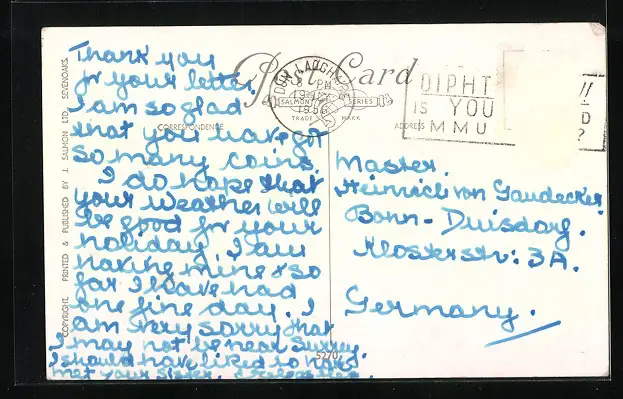 Post Card
COPYRIGHT. PRINTED & PUBLISHED BY J. SALMON LTD. SEVENOAKS.
CORRESPONDENCE
ADDRESS
SALMON SERIES
TRADE MARK
DUN LAOGHAIRE
PM
1956
DIPHT
IS YOU
MMU
D
?
Thank you
for your letter.
I am so glad
that you have got
so many coins.
I do hope that
your weather will
be good for your
holiday. I am
having mine & so
far I have had
one fine day. I
am very sorry that
I may not be near Surrey.
I should have liked to have
met your sister.
Master.
Heinrich von Gaudecker.
Bonn - Duisdorf.
Klosterstr: 3A.
Germany.
5270